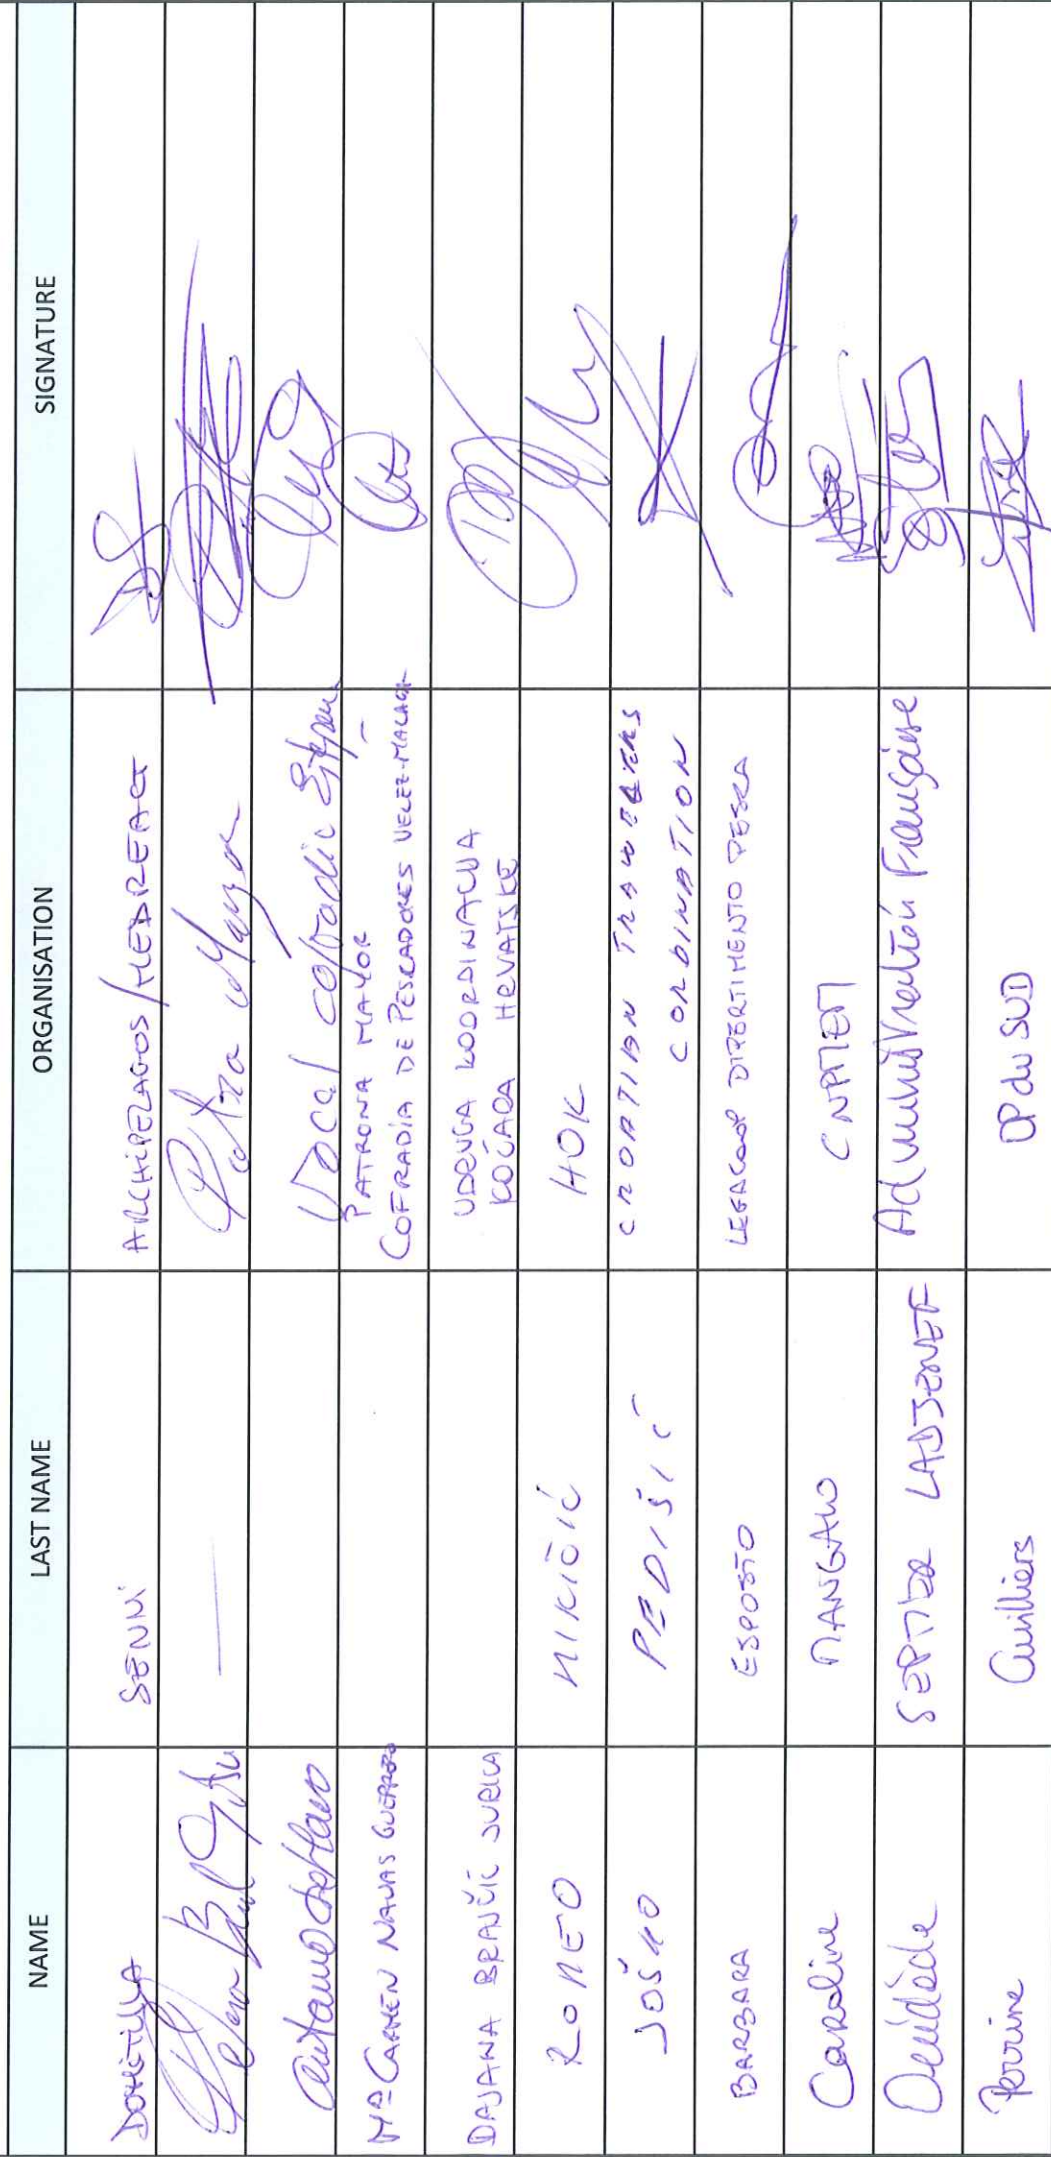 NAME LAST NAME ORGANISATION SIGNATURE
DOMITILLA SENNI ARCHIPELAGOS/MEDREACT
Patrona Mayor
Vocal cofradía
Mª CARMEN NAVAS GUERRERO PATRONA MAYOR
COFRADÍA DE PESCADORES VELEZ-MALAGA
DAJANA BRANČIĆ JURICA UDRUGA KOORDINACIJA
KOĆARA HRVATSKE
ROMEO NIKIČIĆ HOK
JOŠKO PEDIŠIĆ CROATIAN TRAWLERS
CORDINATION
BARBARA ESPOSTO LEGACOOP DIPARTIMENTO PESCA
Caroline MANGALO CNPMEM
Administration Française
Perrine Cuvilliers OP du SUD